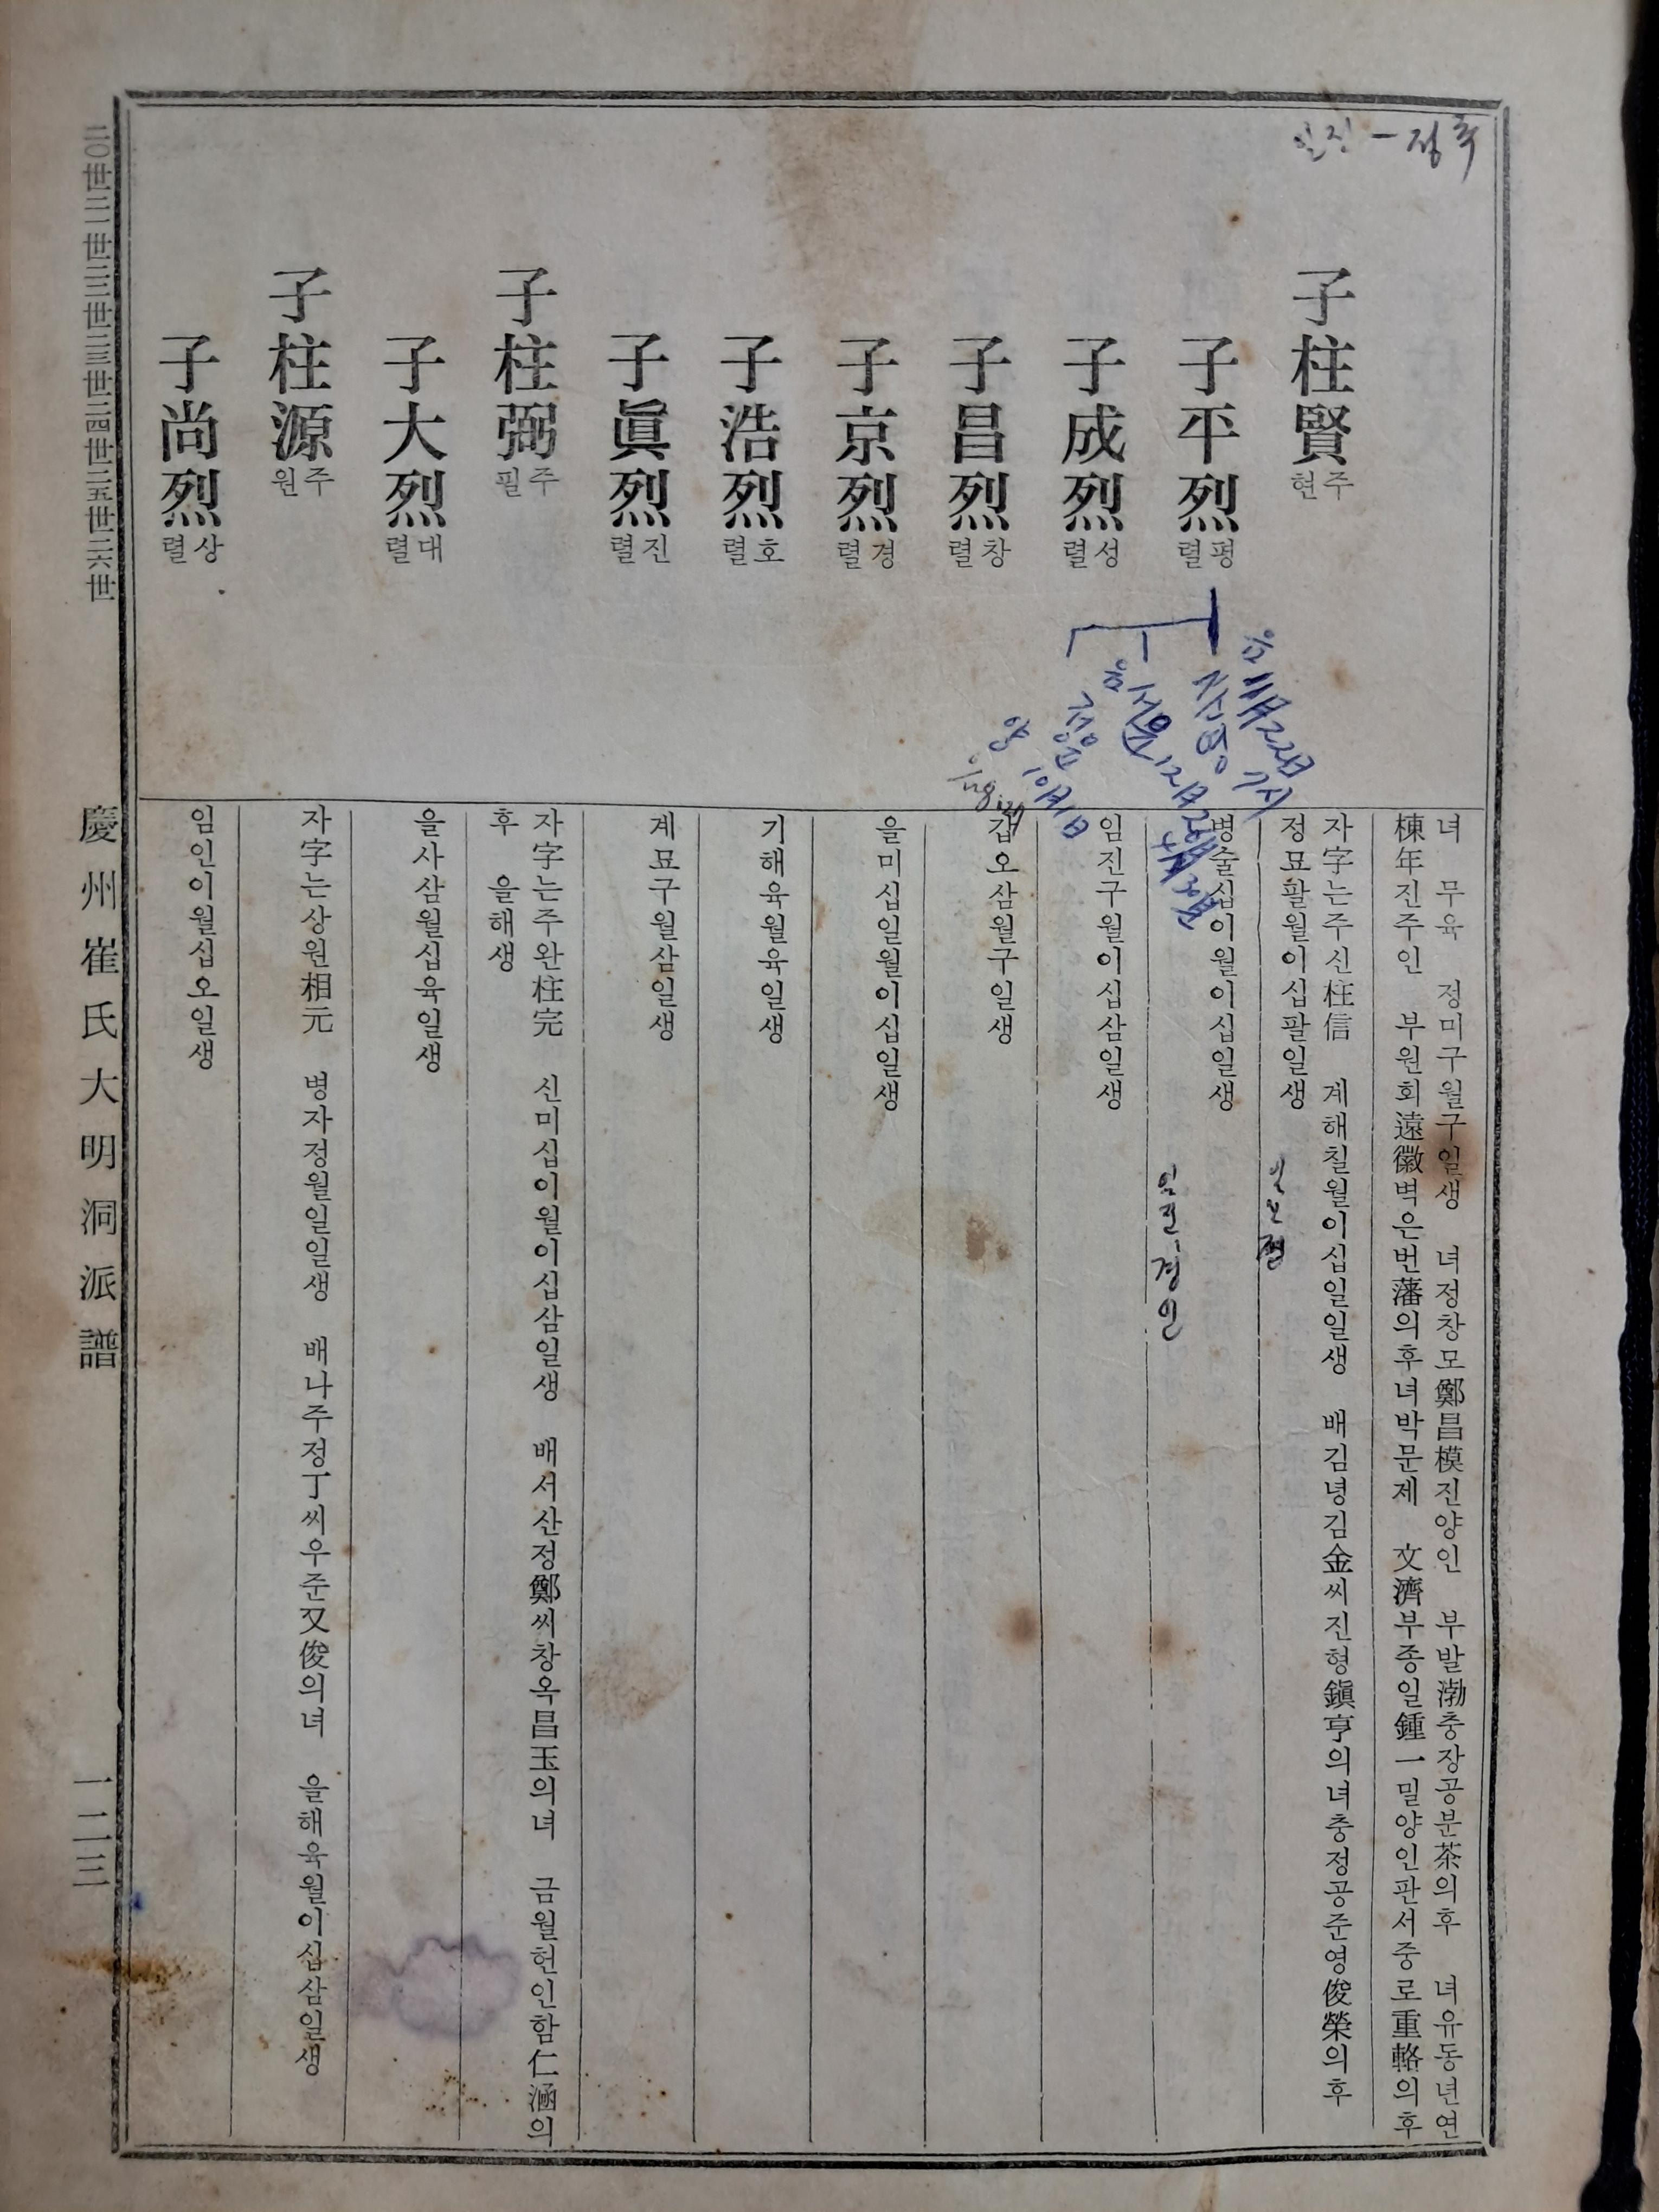 녀 무육 정미구월구일생 녀정창모鄭昌模진양인 부발渤충장공분茶의후 녀유동년연
棟年진주인 부원회遠徽벽은번藩의후녀박문제 文濟부종일鍾一밀양인판서중로重輅의후
子柱賢
주현
자字는주신柱信 계해칠월이십일일생 배김녕김金씨진형鎭亨의녀충정공준영俊榮의후
정묘팔월이십팔일생
子平烈
평렬
병술십이월이십일생
子成烈
성렬
임진구월이십삼일생
子昌烈
창렬
갑오삼월구일생
子京烈
경렬
을미십일월이십일생
子浩烈
호렬
기해육월육일생
子眞烈
진렬
계묘구월삼일생
子柱弼
주필
자字는주완柱完 신미십이월이십삼일생 배서산정鄭씨창옥昌玉의녀 금월헌인함仁涵의
후 을해생
子大烈
대렬
을사삼월십육일생
子柱源
주원
자字는상원相元 병자정월일일생 배나주정丁씨우준又俊의녀 을해육월이십삼일생
子尚烈
상렬
임인이월십오일생
二〇世二一世二二世二三世二四世二五世二六世
慶州崔氏大明洞派譜
一二三